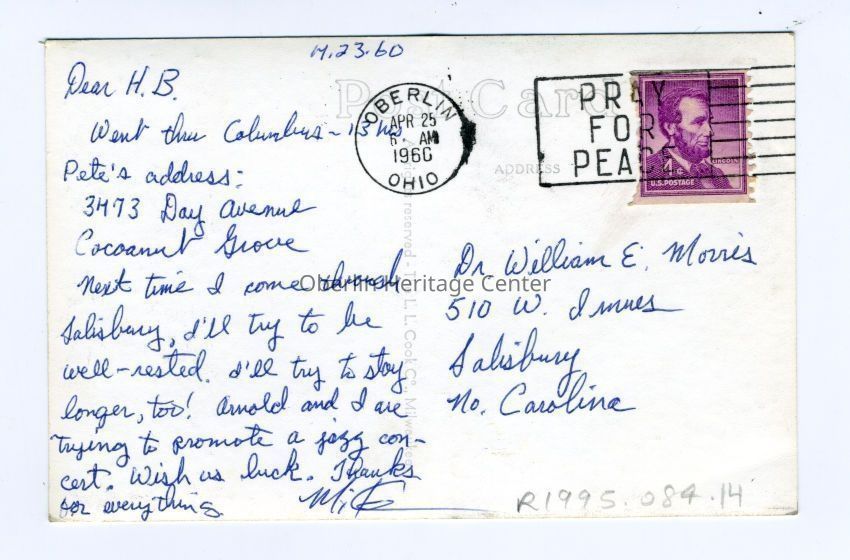 4.23.60
Dear H.B.
Went thru Columbus - 13 hrs
Pete's address:
3473 Day Avenue
Cocoanut Grove
Next time I come through
Salisbury, I'll try to be
well-rested. I'll try to stay
longer, too! Arnold and I are
trying to promote a jazz con-
cert. Wish us luck. Thanks
for everything.
Post Card
OBERLIN
APR 25
AM
1960
OHIO
PRAY
FOR
PEACE
LINCOLN
U.S. POSTAGE
ADDRESS
reserved - The L. L. Cook Co., Milwaukee
Oberlin Heritage Center
Dr. William E. Morris
510 W. Innes
Salisbury
No. Carolina
R1995.084.14